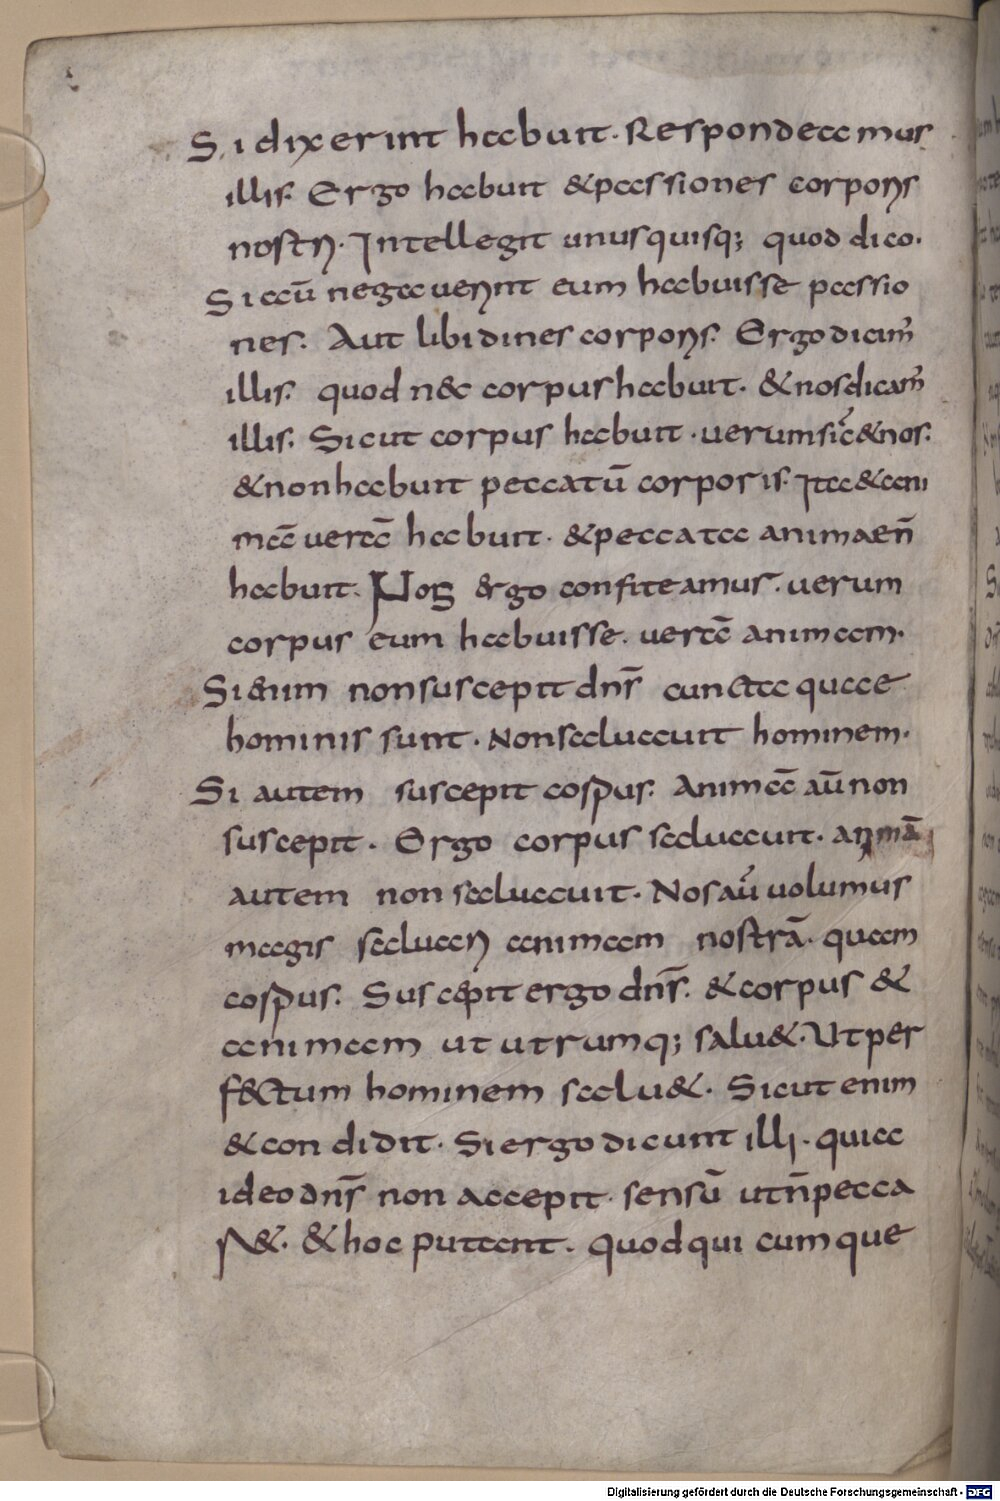 Si dixerint habuit. Respondeamus
illis. Ergo habuit & passiones corporis
nostri. Intellegit unusquisq; quod dico.
Si aū negauerint eum habuisse passio
nes. Aut libidines corporis. Ergo dicim̅
illis. quod n&c corpus habuit. & nos dicam̅
illis. Sicut corpus habuit. uerum sic̅ & nos.
& non habuit peccatū corporis. Ita & ani
mā uerā habuit. & peccata animae n̄
habuit. Nos ergo confiteamus. uerum
corpus eum habuisse. uerā animam.
Si &iim non suscepit dn̅s cuncta quae
hominis sunt. Non saluauit hominem.
Si autem suscepit corpus. Animā aū non
suscepit. Ergo corpus saluauit. animā
autem non saluauit. Nos aū uolumus
magis saluari animam nostrā. quam
corpus. Suscepit ergo dn̅s. & corpus &
animam ut utrumq; salu&. Ut per
f&ctum hominem salu&. Sicut enim
& condidit. Si ergo dicunt illi. quia
ideo dn̅s non accepit sensū ut n̄ pecca
r&. & hoc putant. quod qui cumque
Digitalisierung gefördert durch die Deutsche Forschungsgemeinschaft - DFG